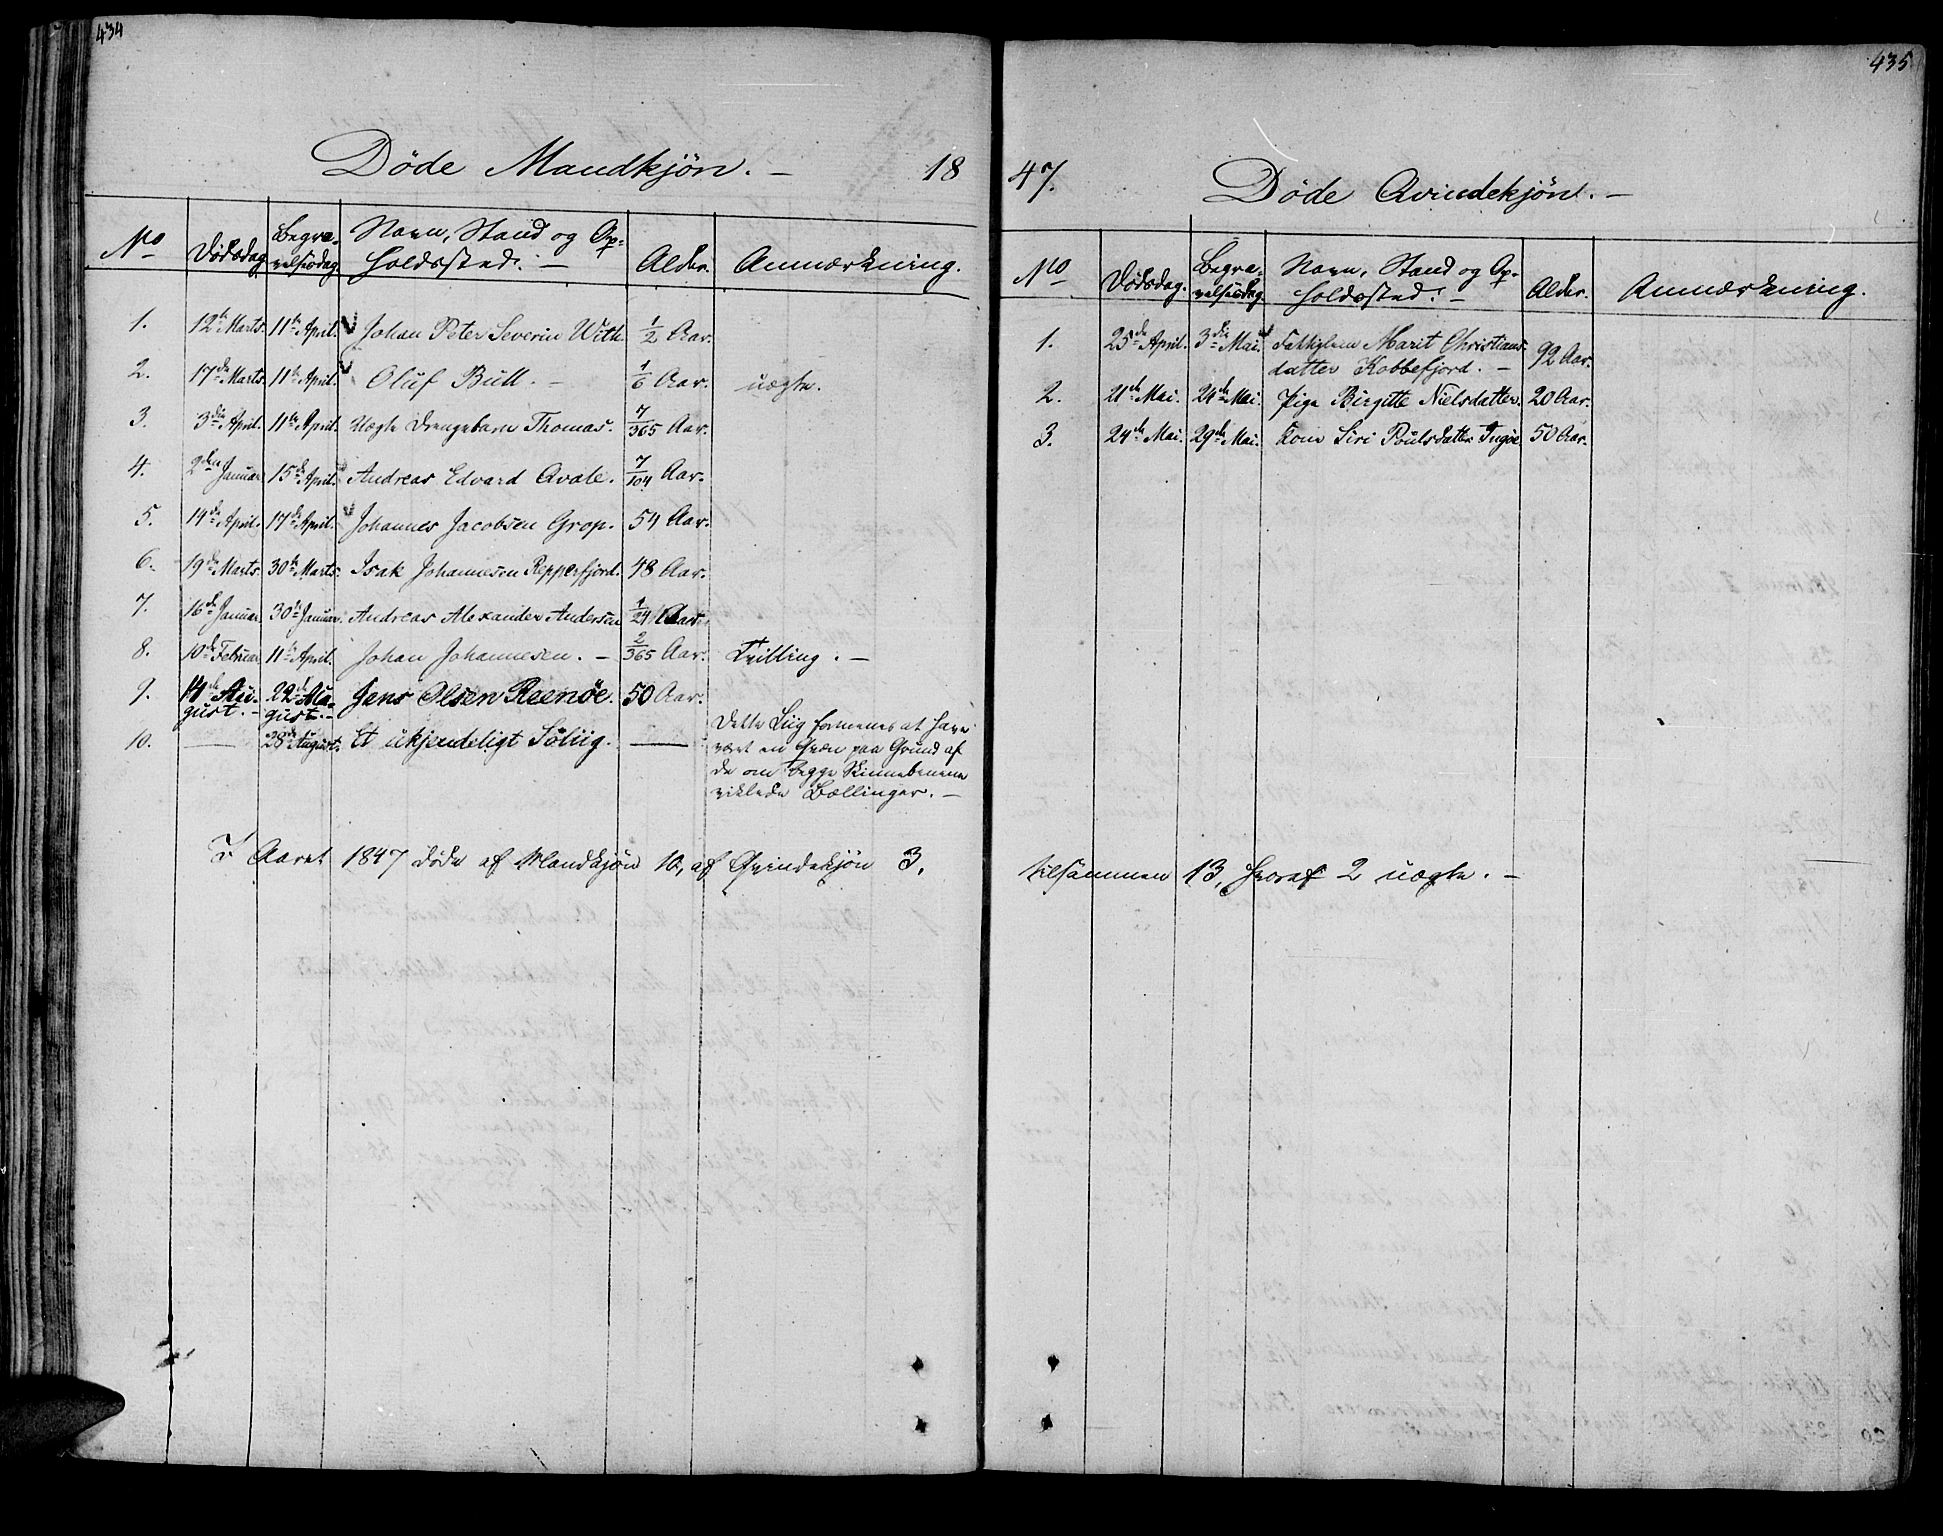 434
Døde Mandkjøn. — 18
No Dødsdag. Begra-velsesdag. Navn, Stand og Op-holdssted. — Alder. Anmærkning.
1. 12te Marts. 11te April. Johan Peter Severin With 1/2 Aar.
2. 17de Marts. 11te April. Oluf Bull. — 1/6 Aar. uægte.
3. 3die April. 11te April. Uægte Drengebarn Thomas. 7/365 Aar.
4. 2den Januar. 15de April. Andreas Edvard Qvale. 7/104 Aar.
5. 14de April. 17de April. Johannes Jacobsen Grop. 54 Aar.
6. 19de Marts. 30te Marts. Isak Johannesen Repperfjord. 48 Aar.
7. 16de Januar. 30te Januar. Andreas Alexander Andersen 1/24 Aar.
8. 10de Februar. 11te April. Johan Johannesen. — 2/365 Aar. Tvilling. —
9. 14de Au- 22de Au- Jens Olsen Reenøe. 50 Aar.
gust. — gust. —
10. — 28de August. Et ukjendeligt Søliig. —
Dette Liig formenes at have
været en Qvæn paa Grund af
de om begge Skinnebenene
viklede Bællinger. —
I Aaret 1847 døde af Mandkjøn 10, af Qvindekjøn 3,
435
47. Døde Qvindekjøn. —
No Dødsdag. Begra-velsesdag. Navn, Stand og Op-holdssted. — Alder. Anmærkning.
1. 25de April. 3die Mai. Fattiglem Marit Christians-
datter Kobbefjord. — 92 Aar.
2. 21de Mai. 24de Mai. Pige Birgitte Nielsdatter. 20 Aar.
3. 24de Mai. 29de Mai. Kone Siri Poulsdatter Ingøe 50 Aar.
tilsammen 13, hvoraf 2 uægte. —